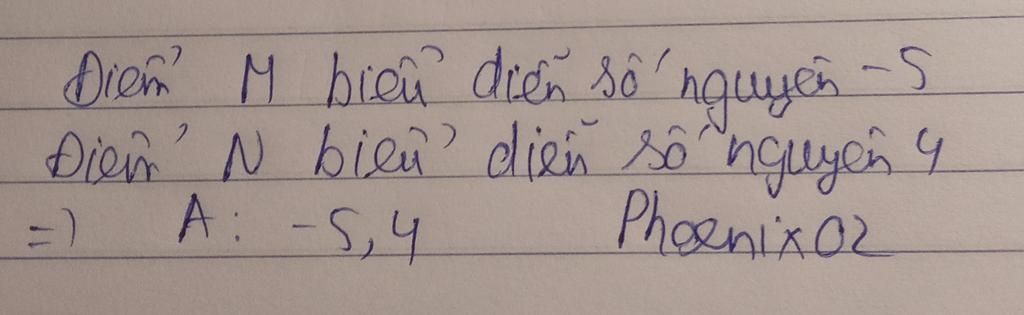 Điểm M biểu diễn số nguyên -5
Điểm N biểu diễn số nguyên 4
=) A: -5,4 Phoenix02